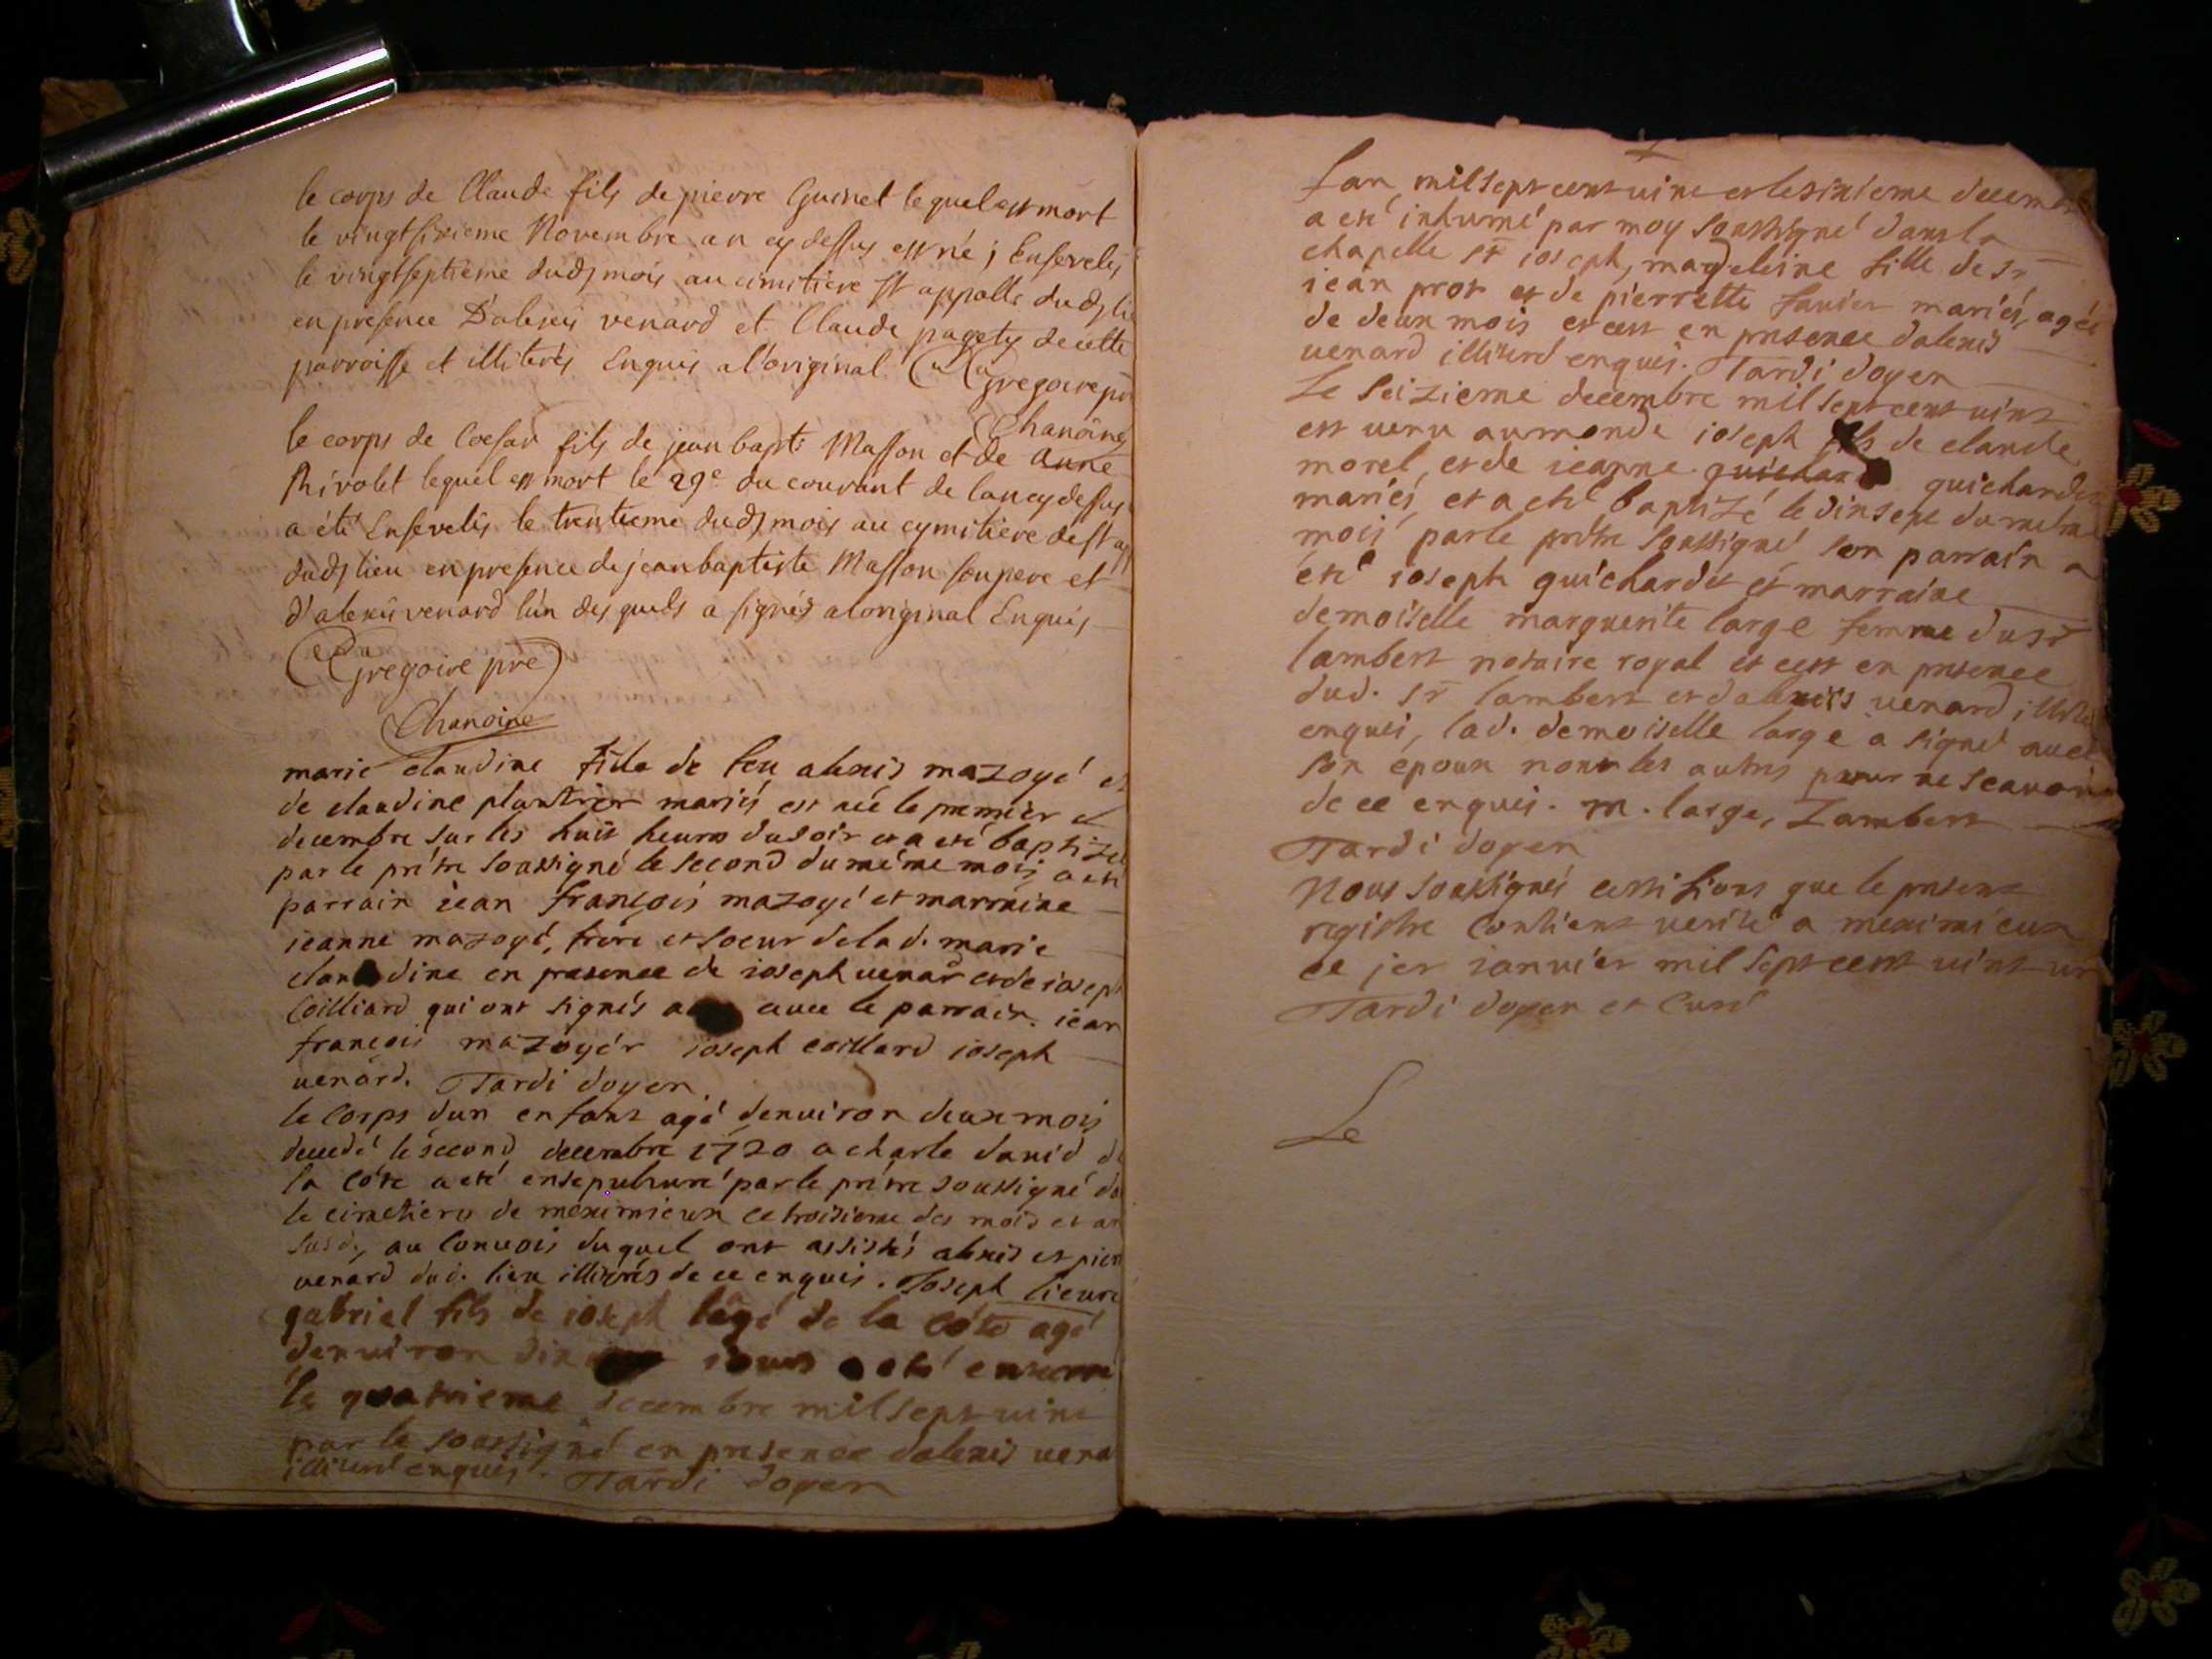 le corps de Claude fils de pierre Guinet lequel est mort
le vingtsixieme Novembre an cy dessus est né ; Ensevelis
le vingtseptieme dud mois au cimitiere st appolle dud
en presence D'alexis venard et Claude pagety de cette
parroisse et illiterés Enquis a l'original Gregoire
Chanoine
le corps de Coesar fils de jean bapt Masson et de anne
Rivolet lequel est mort le 29e du courant de lan cy dessus
a été Ensevelis le trentieme dud mois au cymitiere de st
dud lieu en presence de jean baptiste Masson son pere et
d'alexis venard l'un des quels a signés a loriginal Enquis
Gregoire pre
Chanoine
marie claudine fille de feu alexis mazoyé et
de claudine plantier mariés est née le premier
decembre sur les huit heures du soir et a eté baptizée
par le prétre soussigné le second du méme mois, a eté
parrain iean françois mazoyé et marraine
ieanne mazoyé, frere et soeur de la d. marie
claudine en presence de ioseph venard et de ioseph
Coilliard qui ont signés avec le parrain. iean
françois mazoyér ioseph coillard ioseph
venard. Tardi doyen.
le Corps dun enfant agé denviron deux mois
decedé le second decembre 1720 a charle david de
la cóte a eté ensepulturé par le prétre soussigné
le cimetiere de meximieux ce troisieme des mois et an
susd., au Convois du quel ont assistés alexis et
venard dud. lieu illiterés de ce enquis. Joseph lieure
gabriel fils de ioseph lagé de la cóte agé
denviron dix iours a eté enterré
le quatrieme decembre mil sept vint
par le soussigné en presence dalexis
illiteré enquis. Tardi doyen
Lan mil sept cent vint et le sixieme
a eté inhumé par moy soussigné dans la
chapelle st ioseph, magdeleine fille de sr
iean prost et de pierrette Janier mariés, agée
de deux mois et cest en presence dalexis
venard illiteré enquis. Tardi doyen
Le seizieme decembre mil sept cent vint
est venu au monde ioseph fils de claude
morel, et de ieanne guichard
mariés, et a eté baptizé le dixsept du méme
mois par le prétre soussigné son parrain a
eté ioseph guichardet et marraine
demoiselle marguerite large femme du sr
lambert notaire royal et cest en presence
dud. sr lambert et dalexis venard
enquis, la d. demoiselle large a signé avec
son epoux non les autres pour ne scavoir
de ce enquis. m. large, Lambert
Tardi doyen
Nous soussignés certifions que le present
registre Contient verité a meximieux
ce jer ianvier mil sept cent vint un
Tardi doyen et Curé
Le